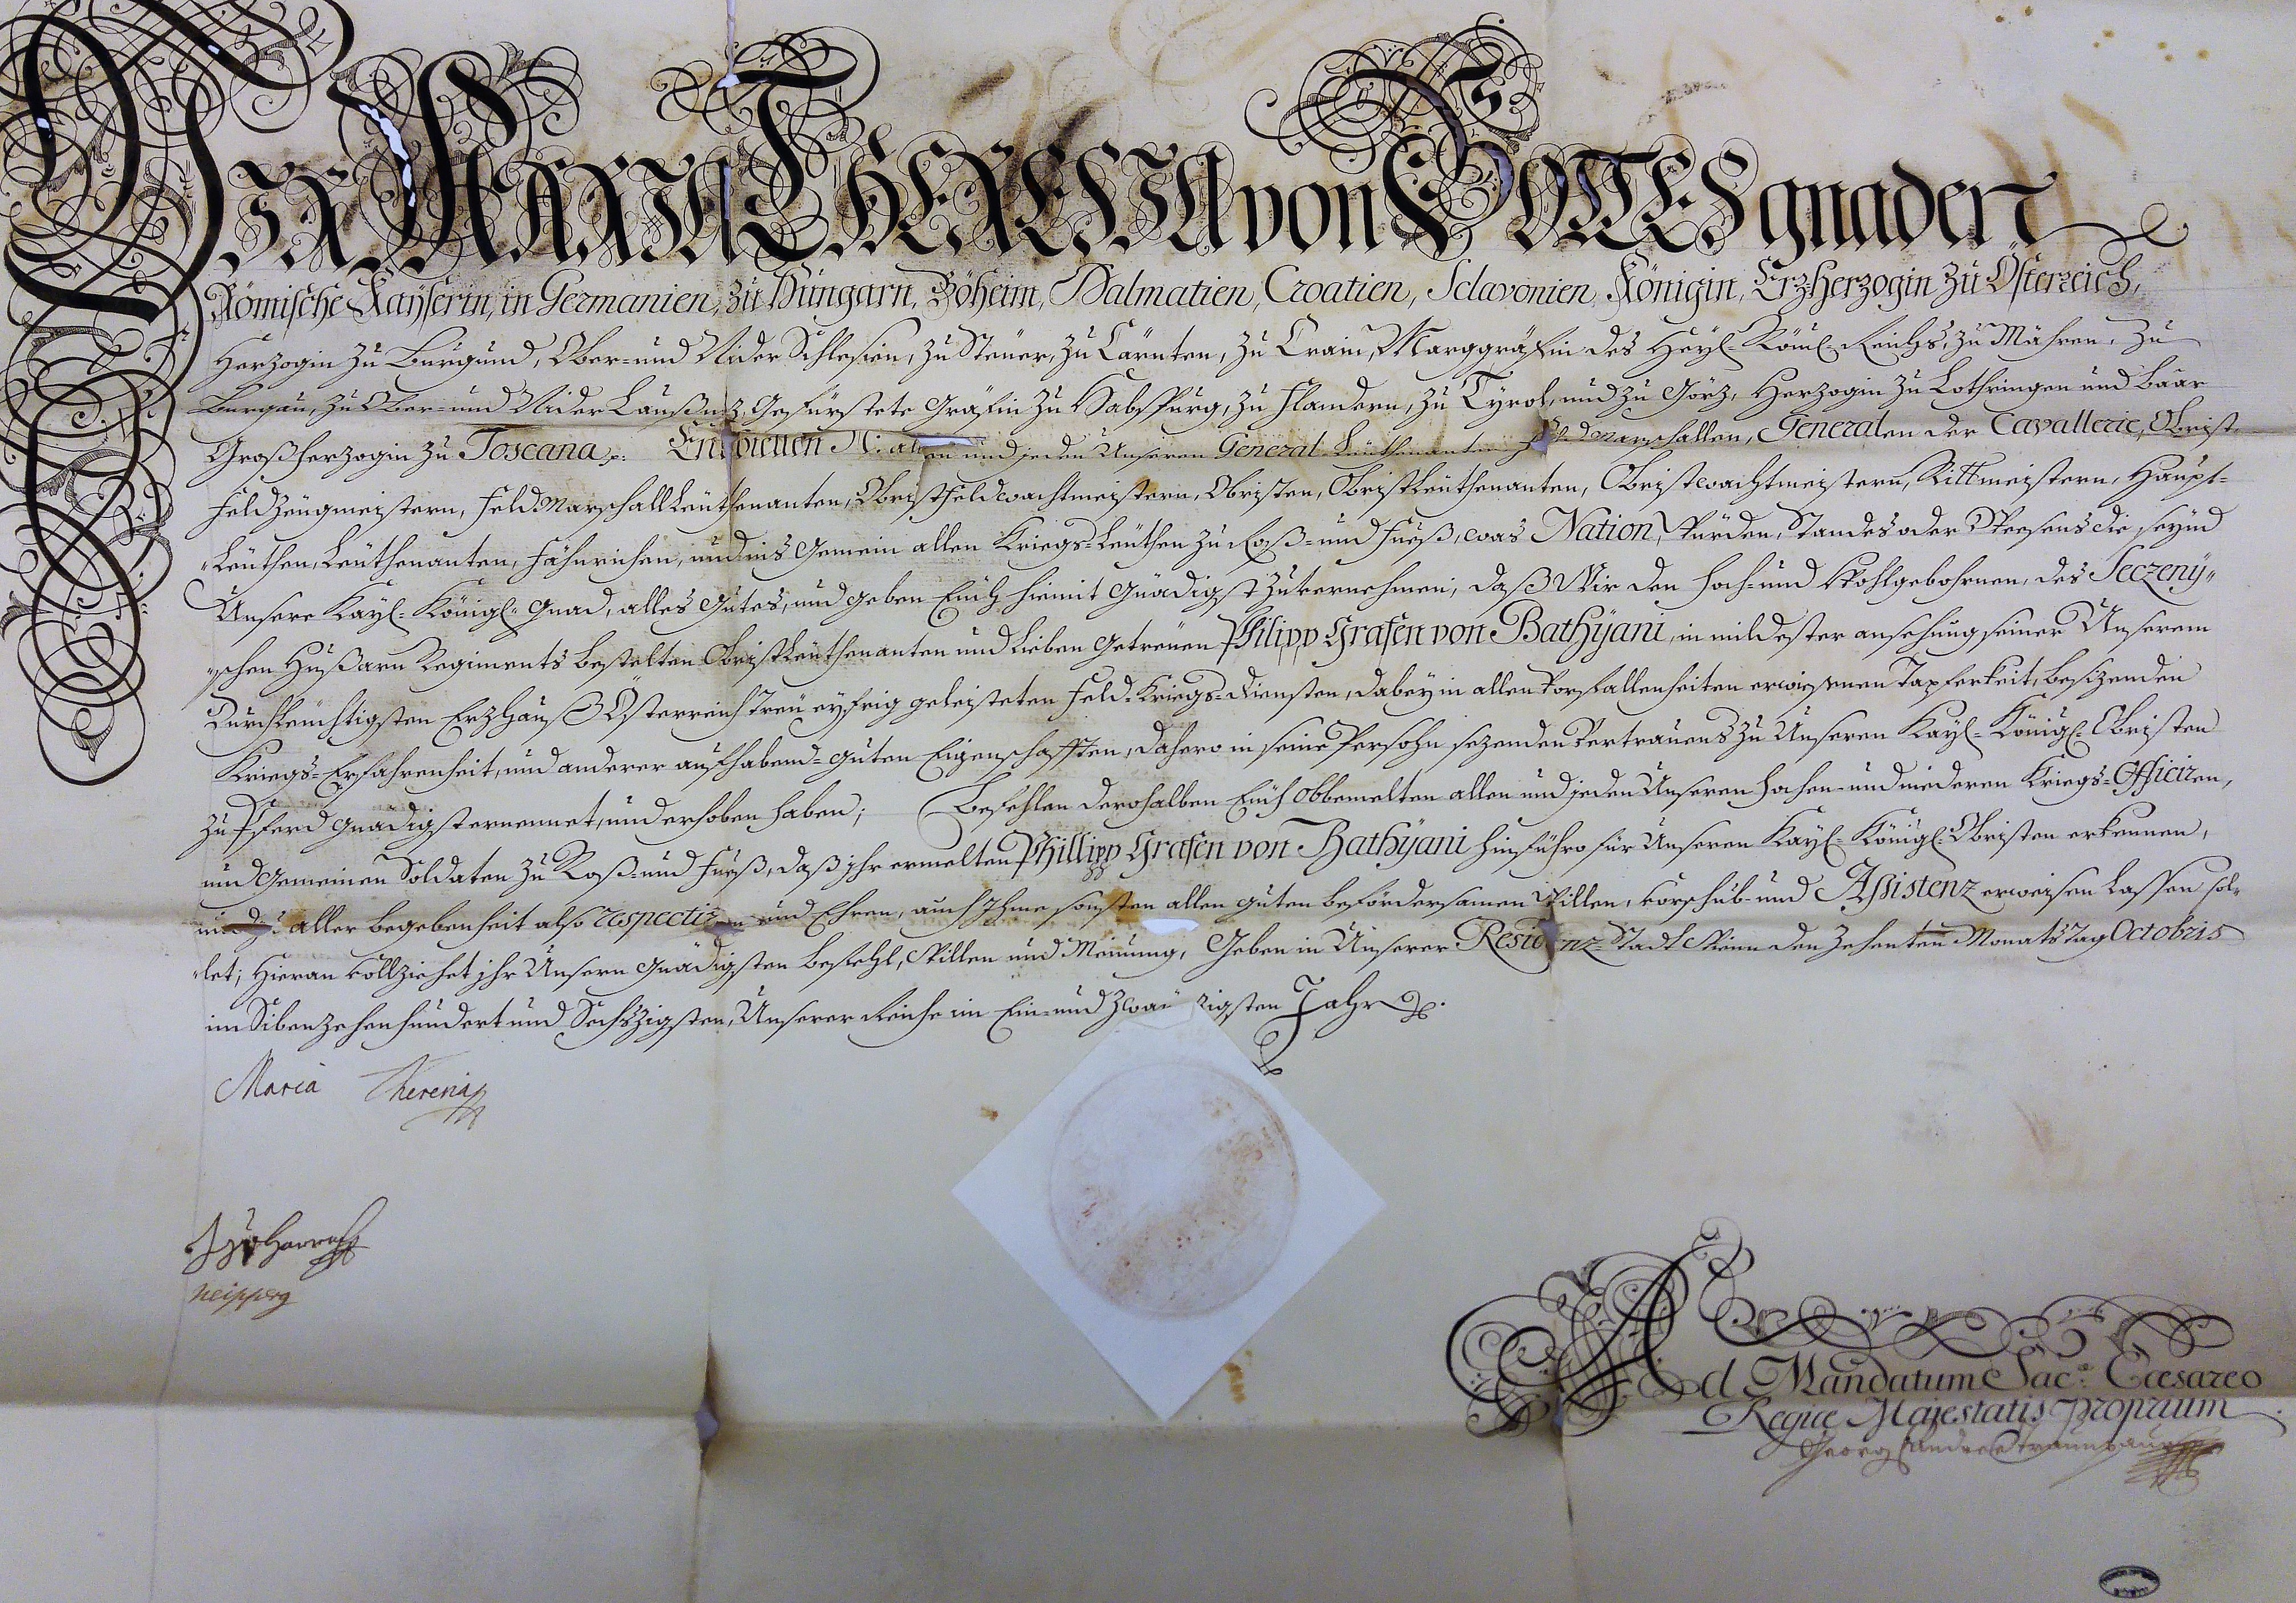 WIR MARIA THERESIA von GOTTES gnaden
Römische Kayserin, in Germanien, zu Hungarn, Böheim, Dalmatien, Croatien, Sclavonien, Königin, Erzherzogin zu Österreich,
Herzogin zu Burgund, Ober- und Nider Schlesien, zu Steyer, zu Cärnten, zu Crain, Marggräfin des Heyl. Röml. Reichs, zu Mähren, zu
Burgau, zu Ober- und Nider Laußniz, Gefürstete Gräfin zu Habspurg, zu Flandern, zu Tyrol, und zu Görz, Herzogin zu Lothringen und Baar
Großherzogin zu Toscana p. Entbieten N: allen und jeden Unseren General-Leuthenanten, Feldmarschallen, Generalen der Cavallerie, Obrist-
Feldzeugmeistern, Feldmarschall Leuthenanten, Obristfeldwachtmeistern, Obristen, Obristleuthenanten, Obristwachtmeistern, Rittmeistern, Haupt-
Leuthen, Leuthenanten, Fähnrichen, und ins Gemein allen Kriegs-Leuthen zu Roß- und Fueß, was Nation, Würden, Standes oder Weesens die seynd
Unsere Kayl. Königl. Gnad, alles Gutes, und geben Euch hiemit Gnädigst zuvernehmen, daß Wir den Hoch- und Wohlgebohrnen, des Seczeny-
schen Hußarn Regiments bestelten Obristleuthenanten und Lieben Getreuen Philipp Grafen von Bathyani, in mildester ansehung seiner Unserem
Durchleuchtigsten Erzhauß Österreich treu eyfrig geleisteten Feld-Kriegs-Diensten, dabey in allen Vorfallenheiten erwiesenen Tapferkeit, besizenden
Kriegs-Erfahrenheit, und anderer aufhabend-guten Eigenschafften, dahero in seine Persohn sezenden Vertrauens zu Unseren Kayl. Königl. Obristen
zu Pferd Gnädigst ernennet, und erhoben haben; Befehlen derohalben Euch obbemelten allen und jeden Unseren hochen- und niederen Kriegs-Officiren,
und Gemeinen Soldaten zu Roß- und Fueß, daß ihr ermelten Phillipp Grafen von Bathyani hinführo für Unseren Kayl. Königl. Obristen erkennen,
und zu aller begebenheit also respectiren und Ehren, auch Ihme sonsten allen guten befördersamen Willen, Vorschub- und Assistenz erweisen lassen sol-
let; Hieran vollziehet ihr Unsern Gnädigsten befehl, Willen und Meinung, Geben in Unserer Residenz-Stadt Wienn den Zehenten Monats Tag Octobris
im Sibenzehenhundert und Sechszigsten, Unserer Reiche im Ein- und Zwanzigsten Jahr p.
Maria Theresia
Harrach
Neipperg
Ad Mandatum Sac:ae Cæsareo
Regiæ Majestatis proprium
Georg Andre